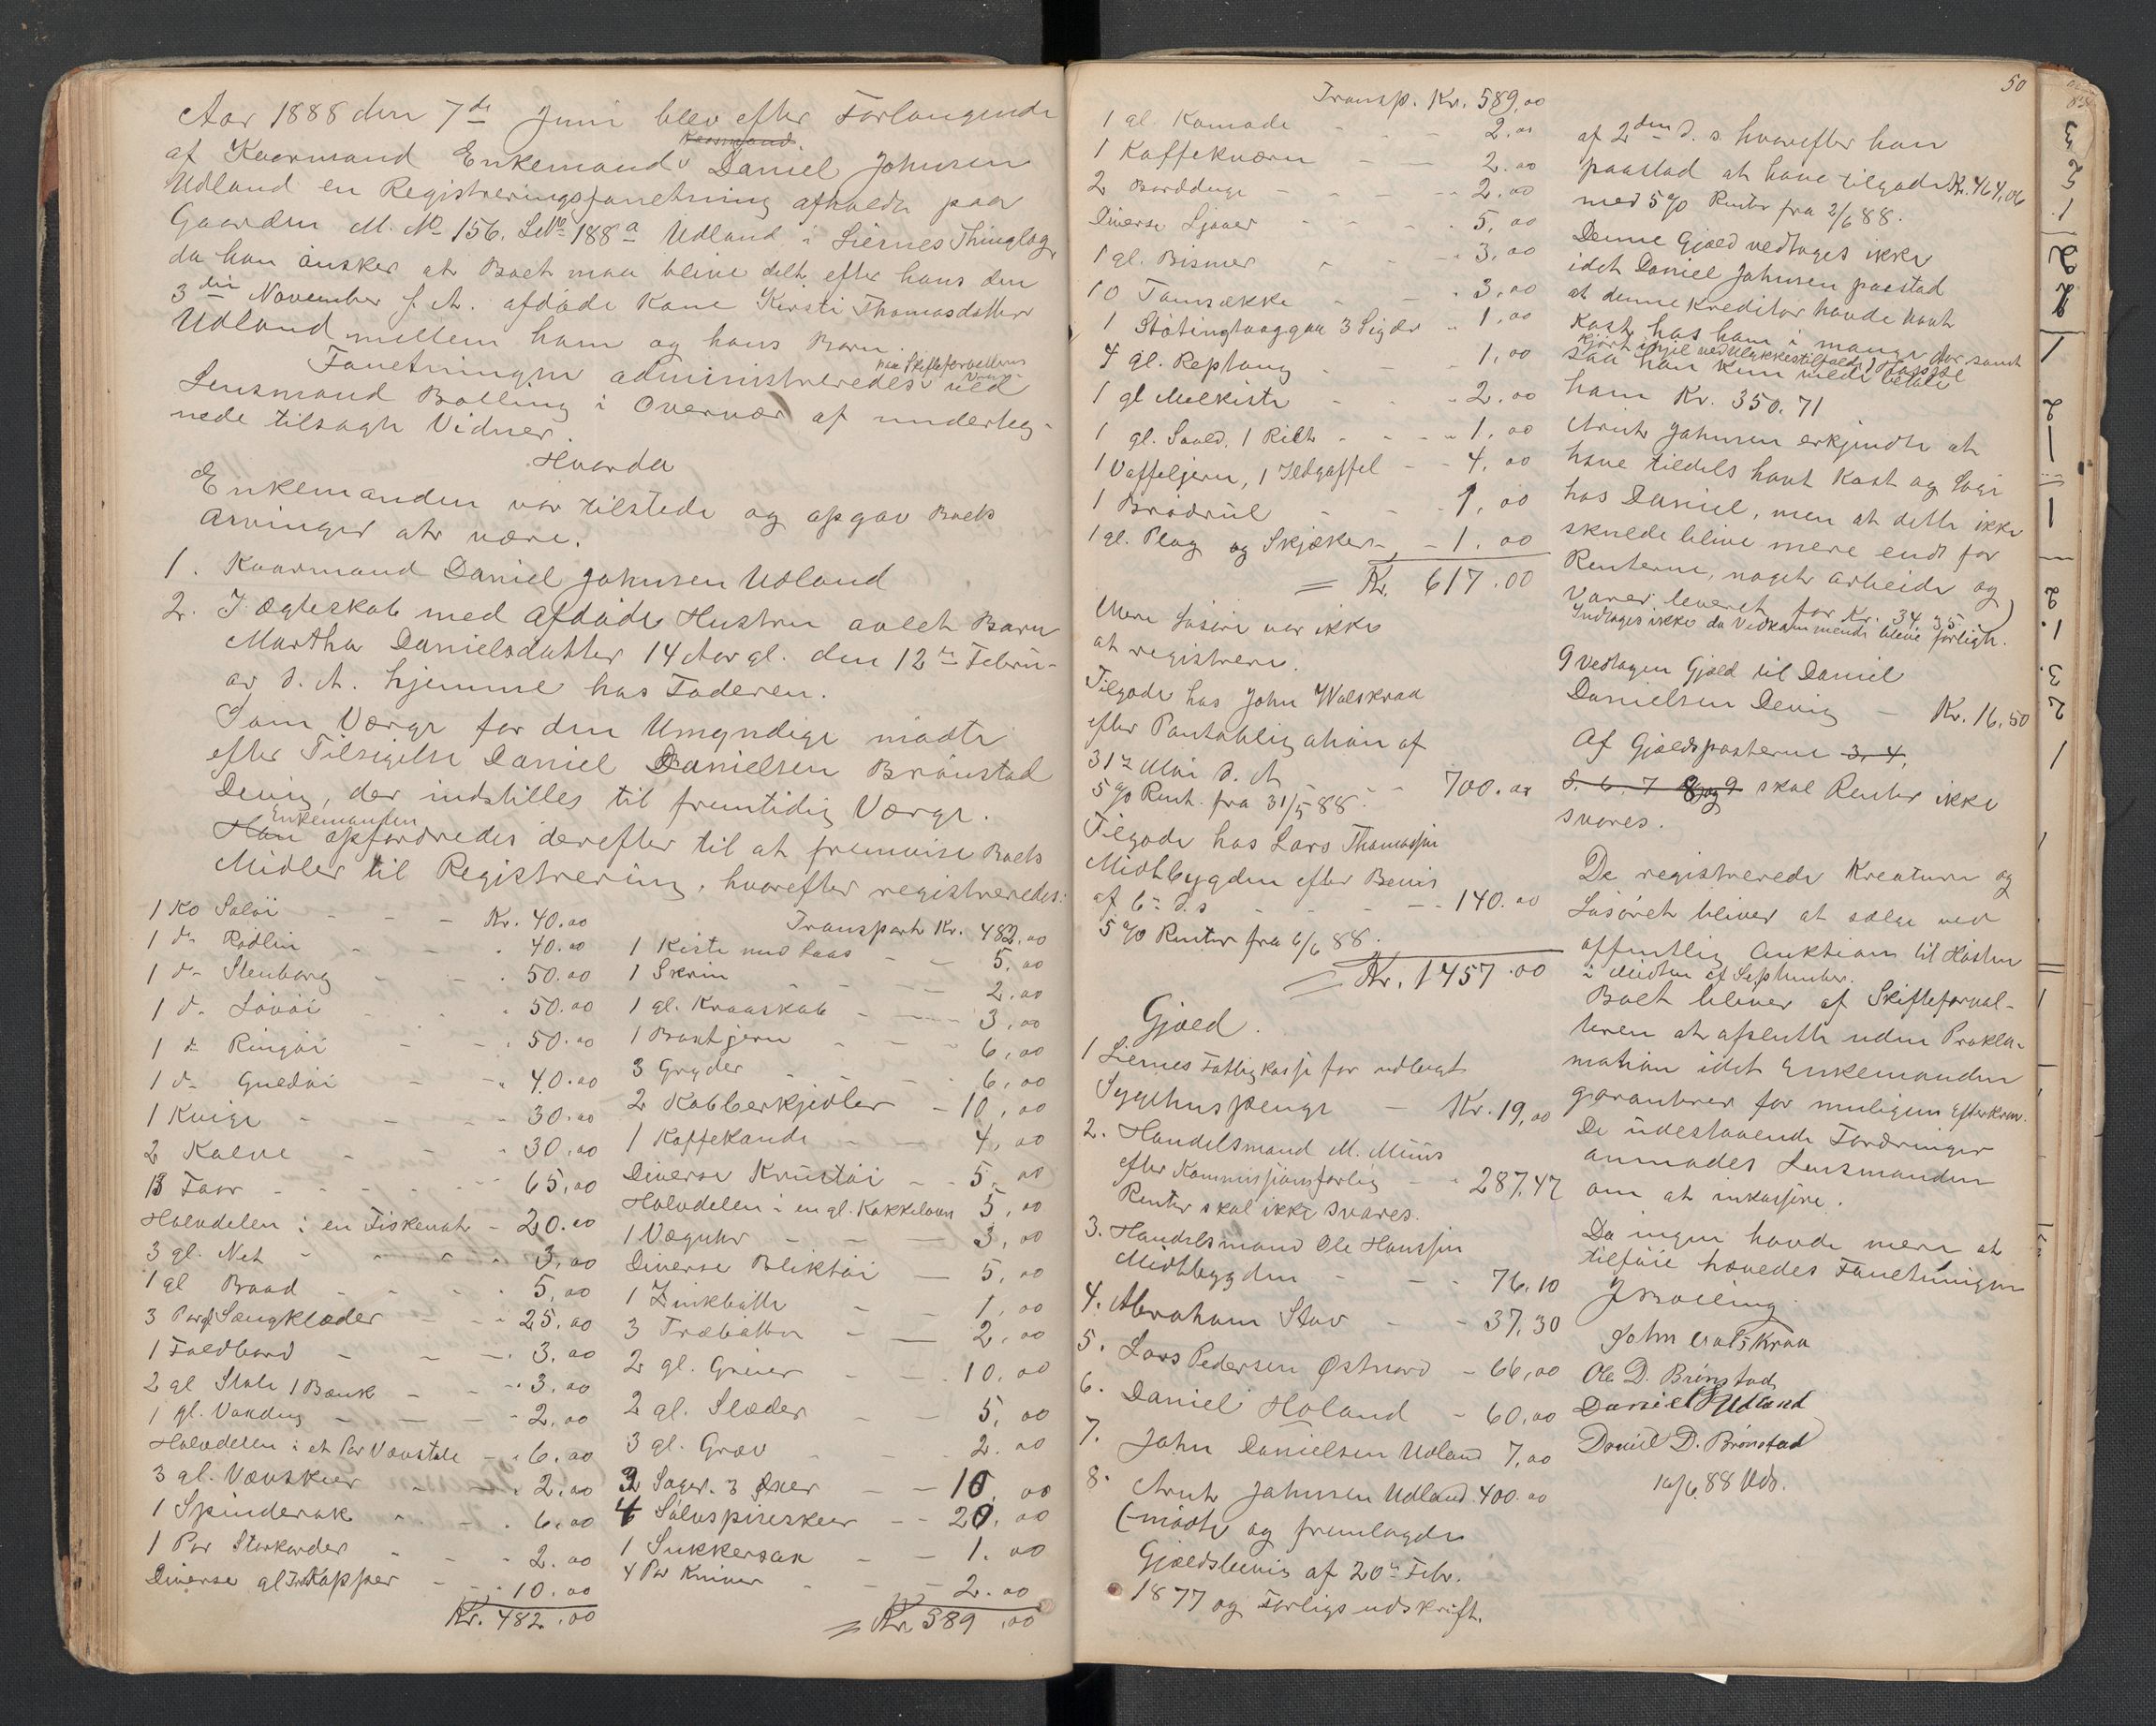 Aar 1888 den 7de Juni blev efter Forlangende
af Kaarmand Enkemand Daniel Johnsen
Udland en Registreringsforretning afholdt paa
Gaarden M. No 156. LNo 188a Udland i Liernes Thinglag,
da han ønsker at Boet maa blive delt efter hans den
3die November f. A. afdøde Kone Kirsti Thomasdatter
Udland mellem ham og hans Barn.
Forretningen administreredes paa Skifteforvalterens Vegne ved
Lensmand Bolling i Overvær af underteg-
nede tilsagte Vidner.
Hvorda
Enkemanden var tilstede og opgav Boets
Arvinger at være.
1. Kaarmand Daniel Johnsen Udland
2. I Ægteskab med afdøde Hustru avlet Barn
Martha Danielsdatter 14 Aar gl. den 12te Febru-
ar d. A. hjemme hos Faderen.
Som Værge for den Umyndige mødte
efter Tilsigelse Daniel Danielsen Brønstad
Devig, der indstilles til fremtidig Værge.
Enkemanden
Han opfordredes derefter til at fremvise Boets
Midler til Registrering, hvorefter registreredes:
1 Ko Saløi - - - Kr. 40.00
1 do Rødlin - - - 40.00
1 do Stenborg - - 50.00
1 do Løvøi - - 50.00
1 do Ringøi - - 50.00
1 do Guldøi - - 40.00
1 Kvige - - - 30.00
2 Kalve - - - 30.00
13 Faar - - - 65.00
Halvdelen i en Fiskenot - 20.00
3 gl. Net - - - 3.00
1 gl Baad - - - 5.00
3 Par gl. Sengklæder - - 25.00
1 Foldbord - - - 3.00
2 gl Stole 1 Bænk - - 3.00
1 gl. Vanding - - - 2.00
Halvdelen i et Par Vævstole - 6.00
3 gl. Vævskeer - - 2.00
1 Spinderok - - 6.00
1 Par Storkarder - - 2.00
Diverse gl Trækopper - - 10.00
Kr. 482.00
Transport Kr. 482.00
1 Kiste med Laas - - 5.00
1 Skrin - - - 2.00
1 gl. Kraaskab - - 3.00
1 Boxtjern - - - 6.00
3 Gryder - - - 6.00
2 Kobberkjedler - 10.00
1 Kaffekande - - 4.00
Diverse Krustøi - - 5.00
Halvdelen i en gl. Kakkelovn 5.00
1 Væguhr - - - 3.00
Diverse Bliktøi - 5.00
1 Zinkbøtte - - 1.00
3 Træbøtter - - 2.00
2 gl. Greier - - 10.00
2 gl. Slæder - - 5.00
3 gl. Grev - - 2.00
2 Sager. 3 Øxer - - 10.00
4 Sølvspiseskeer - - 20.00
1 Sukkersax - - 1.00
4 Par Kniver - - - 2.00
= Kr. 589.00
50
Transp. Kr. 589.00
1 gl Komode - - - 2.00
1 Kaffekværn - - 2.00
2 Bordduge - - - 2.00
Diverse Ljaaer - - - 5.00
1 gl. Bismer - - - 3.00
10 Tomsække - - - 3.00
1 Støtingtougga 3 Sigder - 1.00
4 gl. Reptoug - - - 1.00
1 gl Melkiste - - - 2.00
1 gl. Saald, 1 Rilt - - - 1.00
1 Vaffeljern, 1 Ildgaffel - - 4.00
1 Brødrul - - - 1.00
1 gl. Plog og Skjækers - - 1.00
= Kr. 617.00
Mere Løsøre var ikke
at registrere.
Tilgode hos John Walskraa
efter Pantobligation af
31te Mai d. A - - 700.00
5 % Rent. fra 31/5 88.
Tilgode hos Lars Thomassen
Midtbygden efter Bevis
af 6te d.s - - - 140.00
5 % Renter fra 6/6 88.
= Kr. 1457.00
Gjæld.
1 Liernes Fattigkasse for udlagt
Sygehuspenge - Kr. 19,00
2. Handelsmand M. Muus
efter Kommissionsforlig - - 287,47
Renter skal ikke svares.
3. Handelsmand Ole Hanssen
Midtbygden - - - 76,10
4. Abraham Stav - - 37,30
5. Lars Pedersen Østnord - 66,00
6. Daniel Holand - 60,00
7. John Danielsen Udland 7,00
8. Arnt Johnsen Udland. 400.00
(mødte og fremlagde
Gjældsbevis af 20de Febr.
1877 og Forligsudskrift.
af 2den d.s hvorefter han
paastod at have tilgode Kr. 464,06
med 5 % Renter fra 2/6 88.
Denne Gjæld vedtages ikke
idet Daniel Johnsen paastod
at denne Kreditor havde havt
Kost hos ham i mange Aar, samt
kjørt ihjel ved Ulykkestilfælde 1
saa han kun vilde betale
ham Kr. 350.71
Arnt Johnsen erkjendte at
have tildels havt Kost og Logi
hos Daniel, men at dette ikke
skulde blive mere end for
Renterne, noget Arbeide og
Varer leveret for Kr. 34,35.)
Indtages ikke da Vedkommende bleve forligte.
9 Vedtagen Gjæld til Daniel
Danielsen Devig - Kr. 16,50
Af Gjældsposterne 3, 4,
5. 6. 7 8 og 9 skal Renter ikke
svares.
De registrerede Kreature og
Løsøret bliver at sælge ved
offentlig Auktion til Høsten
i Midten af September.
Boet bliver af Skifteforval-
teren at afslutte uden Prokla-
mation idet Enkemanden
garanterer for muligens Efterkrav.
De udestaaende Fordringer
anmodes Lensmanden
om at inkassere.
Da ingen havde mere at
tilføie hævedes Forretningen
J Bolling
John Valskraa
Ole D. Brønstad
Daniel J Udland
Daniel D. Brønstad
16/6 88 Uds.